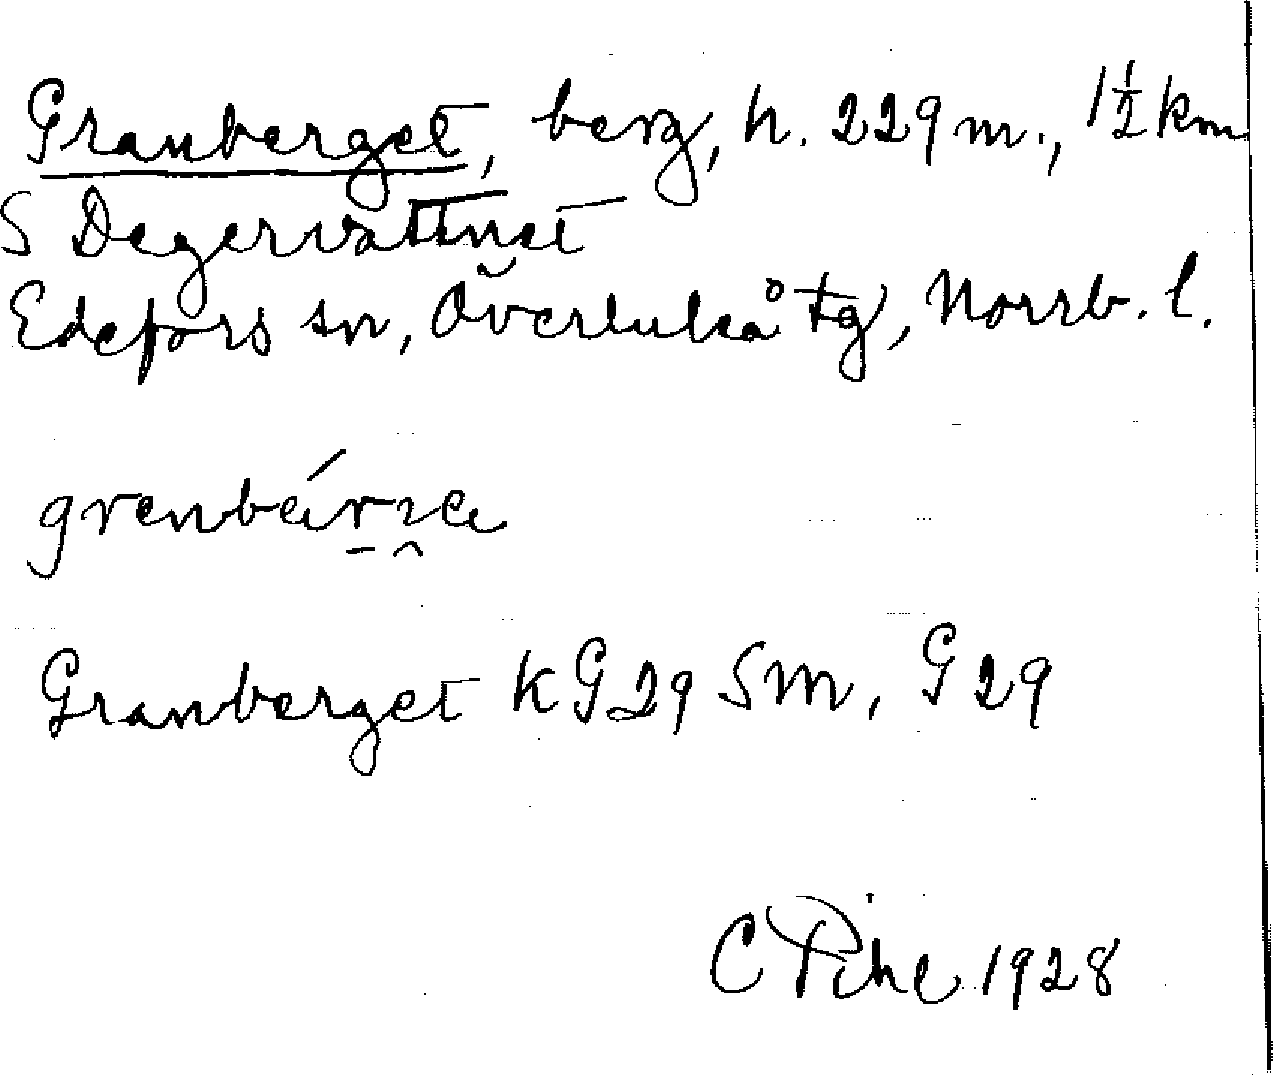 Granberget, berg, h. 229 m., 1½ km
S Degervattnet
Edefors sn, Överluleå tg, Norrb. l.
Granberget KG29 SM, G29
C Pihl 1928